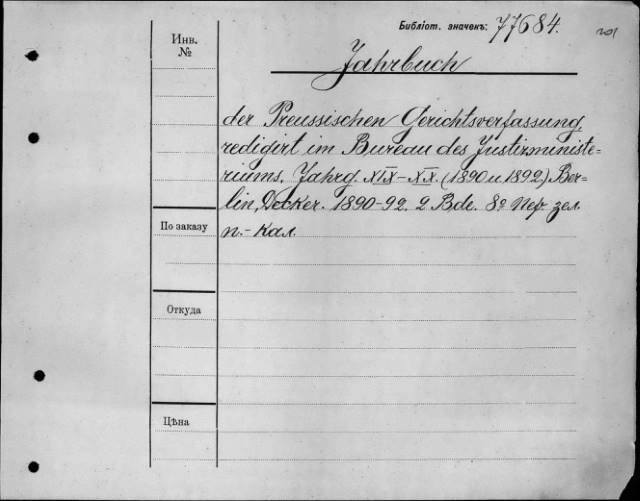 Библіот. значекъ: 77684.
201
Инв.
№
Jahrbuch
der Preussischen Gerichtsverfassung,
redigirt im Bureau des Justizministe=
riums. Jahrg. XIX–XX. (1890 u. 1892) Ber=
lin, Decker. 1890-92. 2 Bde. 8º Пер. зел.
п.- кал.
По заказу
Откуда
Цѣна